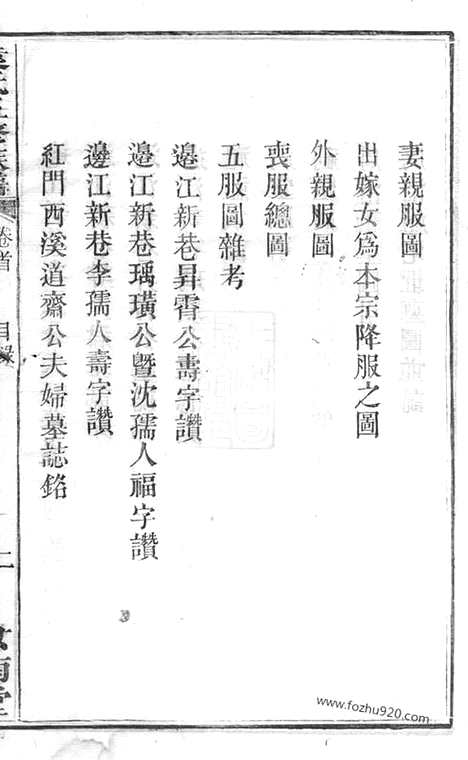 妻親服圖
出嫁女爲本宗降服之圖
外親服圖
喪服總圖
五服圖雜考
邉江新巷昇霄公壽字讚
邉江新巷瑀璜公曁沈孺人福字讚
邊江新巷李孺人壽字讚
紅門西溪道齋公夫婦墓誌銘
卷首
目錄
www.fozhu920.com